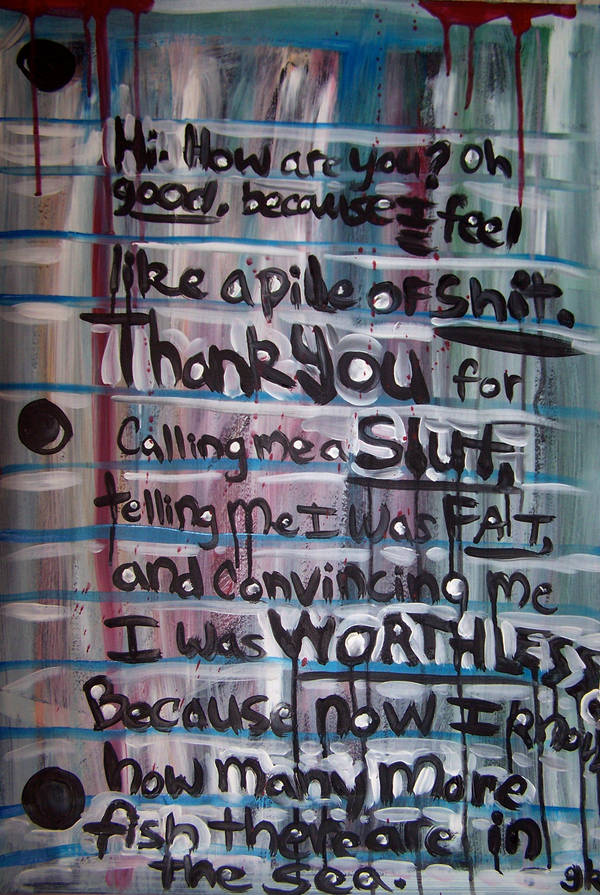 Hi. How are you? Oh
good, because I feel
like a pile of shit.
Thank You for
Calling me a Slut,
telling me I was FAT,
and convincing me
I was WORTHLESS
Because now I know
how many more
fish there are in
the sea.